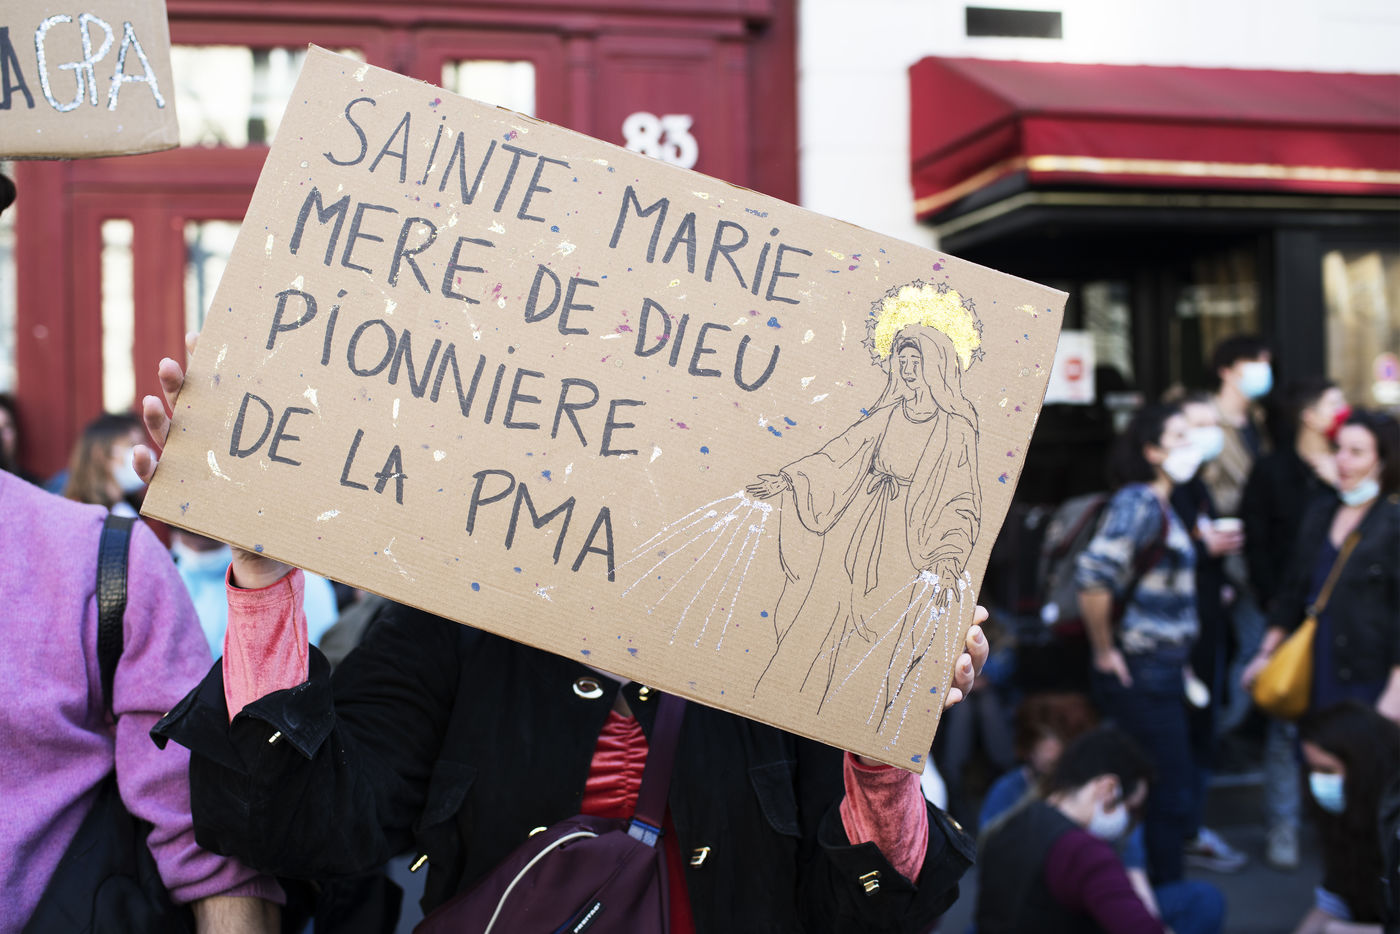 A GPA
83
SAiNTE MARiE
MERE DE DIEU
PiONNiERE
DE LA PMA
FREITAG